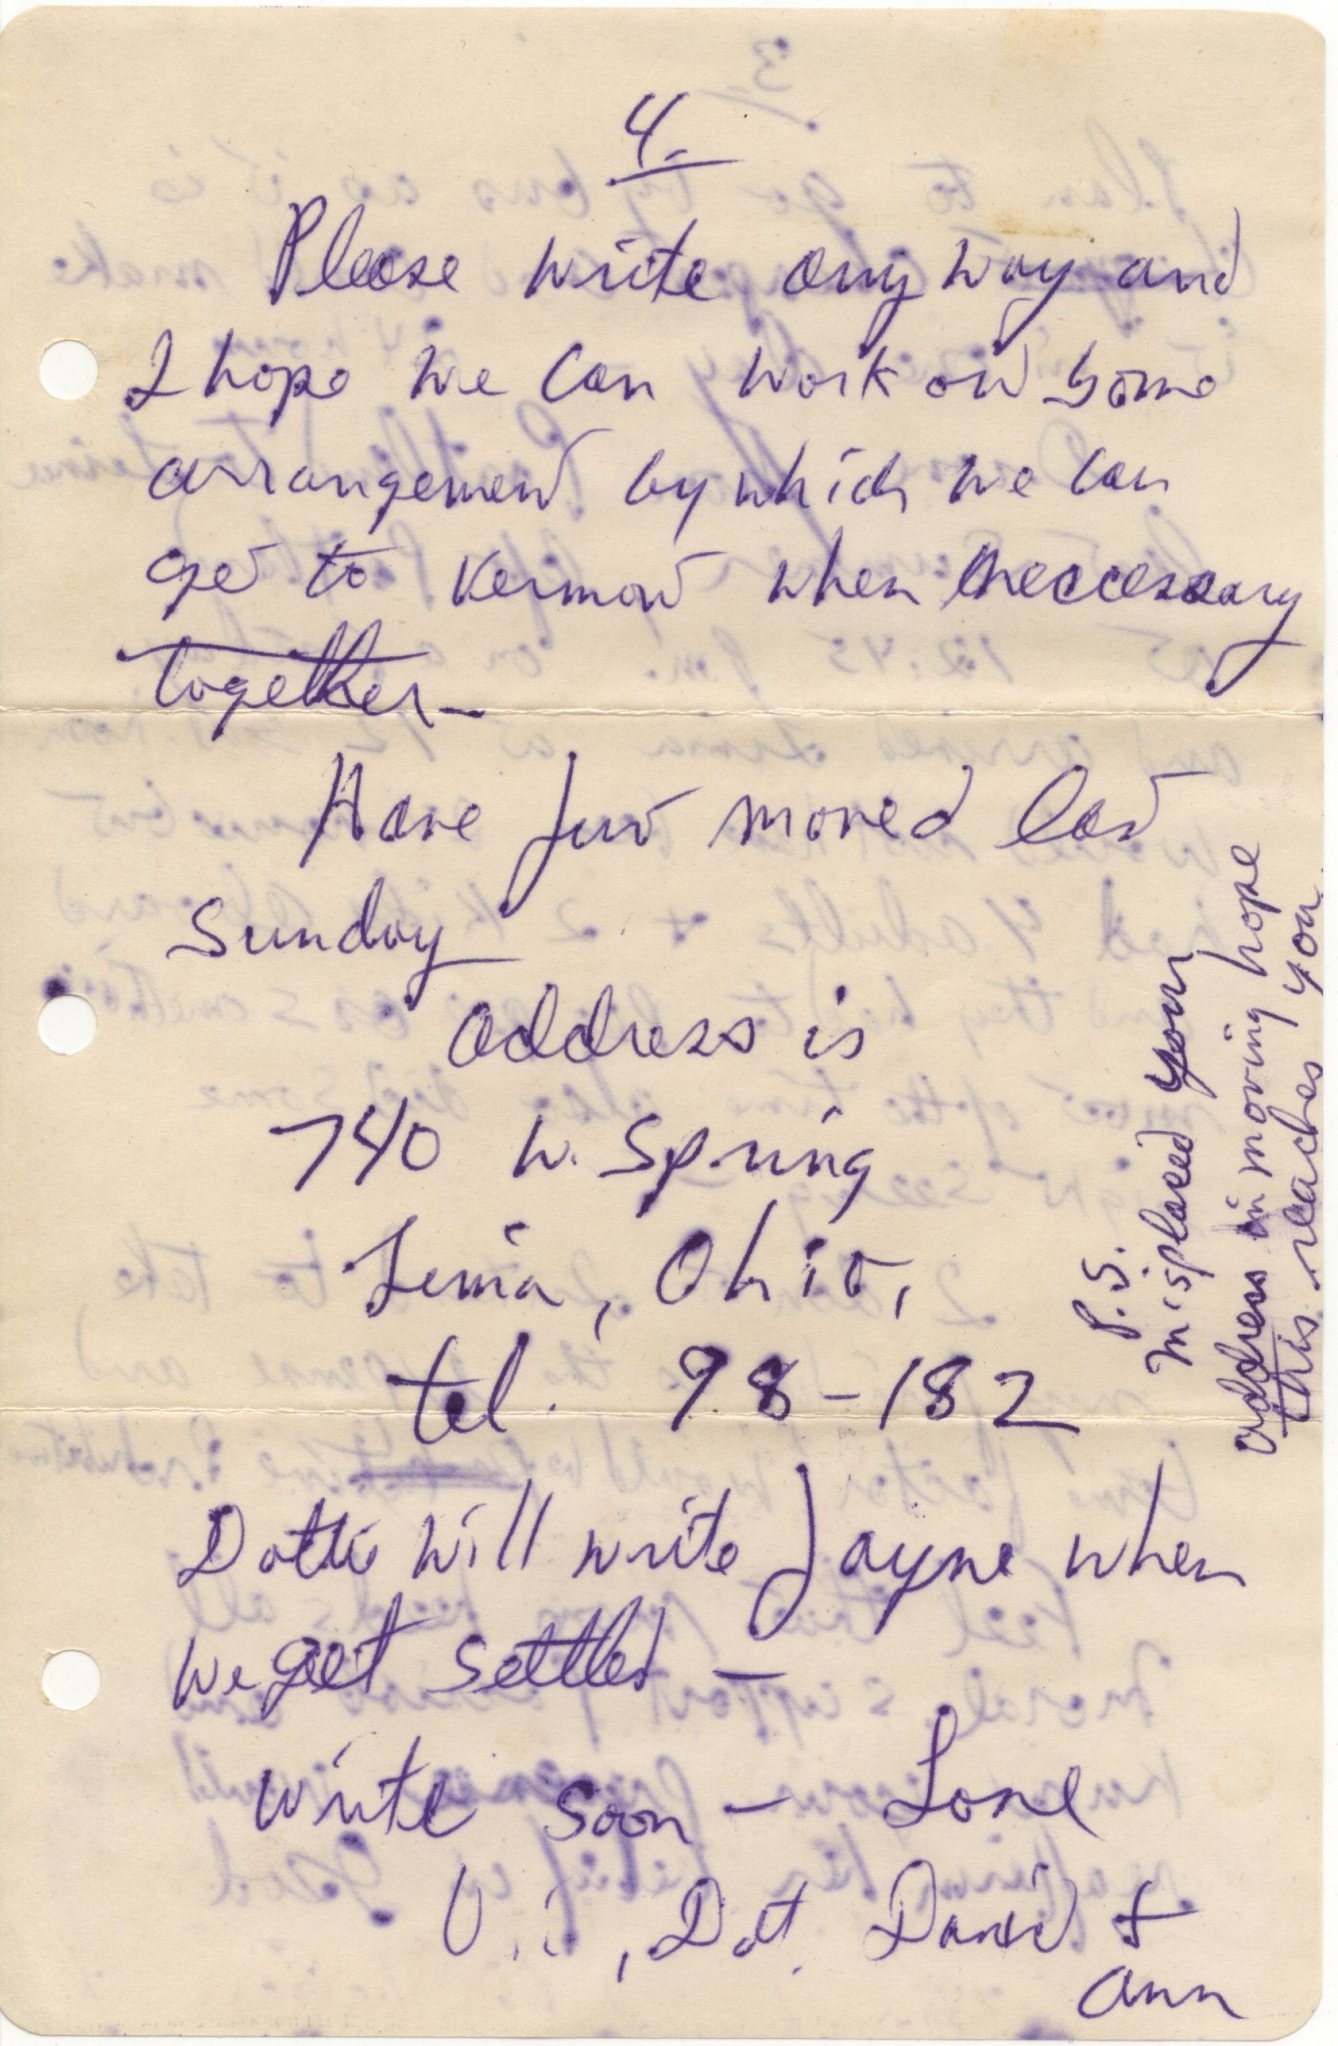 4.
Please write anyway and
I hope we can work out some
arrangement by which we can
get to Vermont when neccessary
together -
Have just moved last
Sunday
address is
740 W. Spring
Lima, Ohio,
tel. 98-182
Dottie will write Jayne when
we get settled -
write soon - Love
Dot David &
Ann
P.S.
misplased your
address in moving hope
this reaches you.